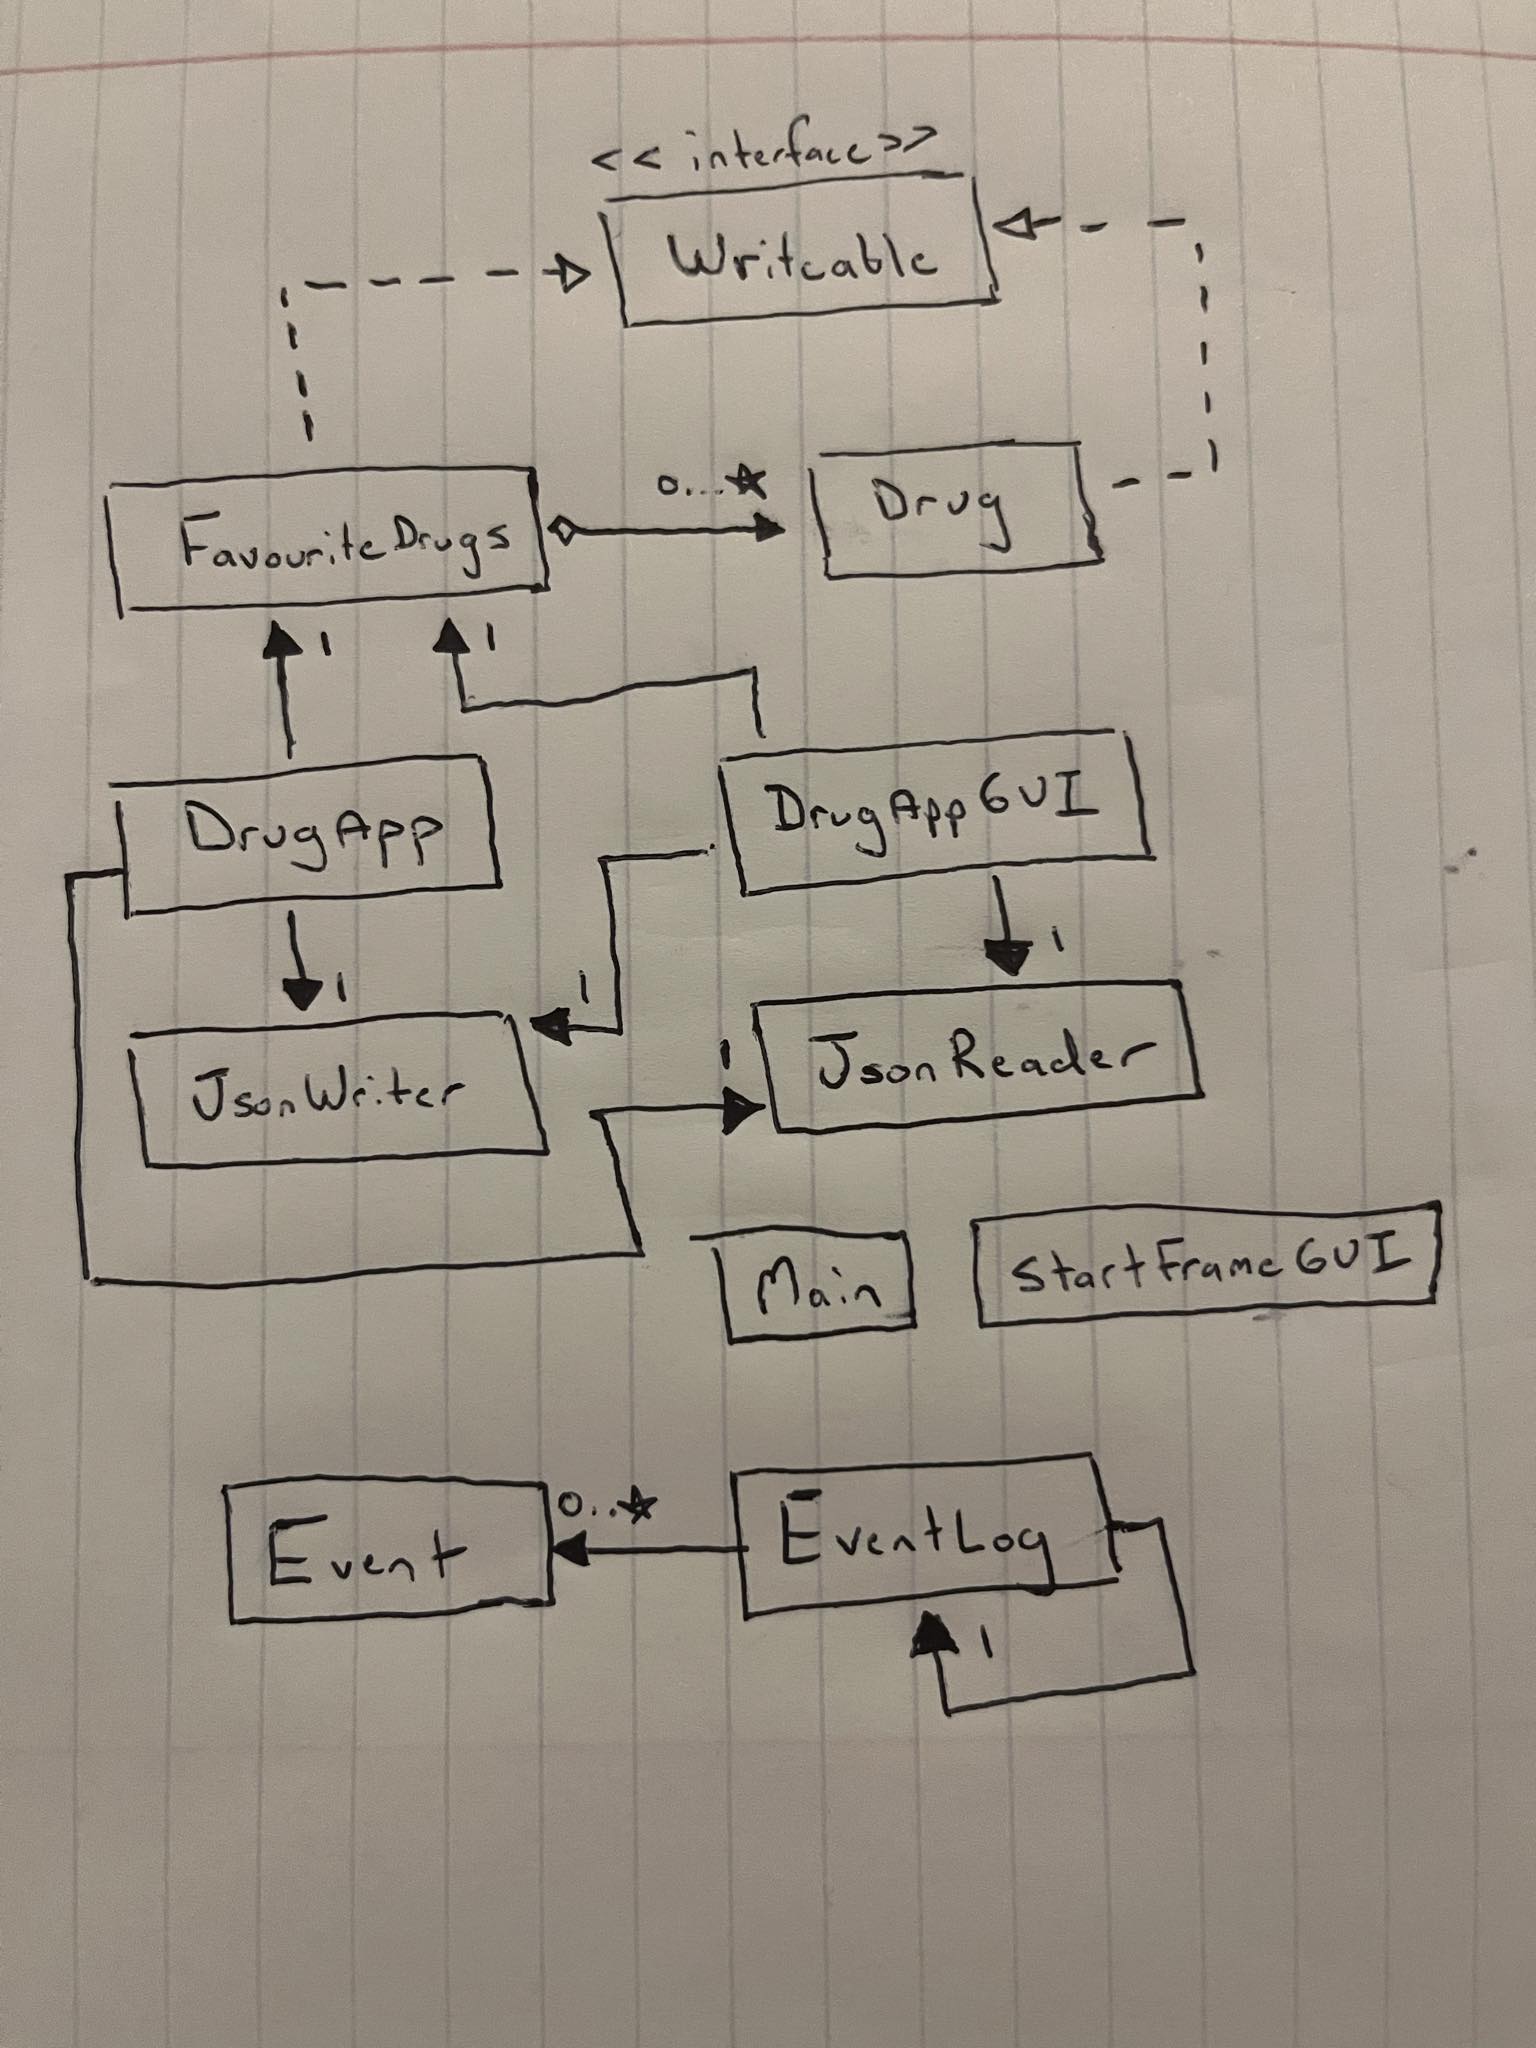 << interface >>
Writeable
0...*
FavouriteDrugs
Drug
1
1
DrugApp
DrugAppGUI
1
1
1
JsonWriter
1
JsonReader
Main
StartFrameGUI
0...*
Event
EventLog
1